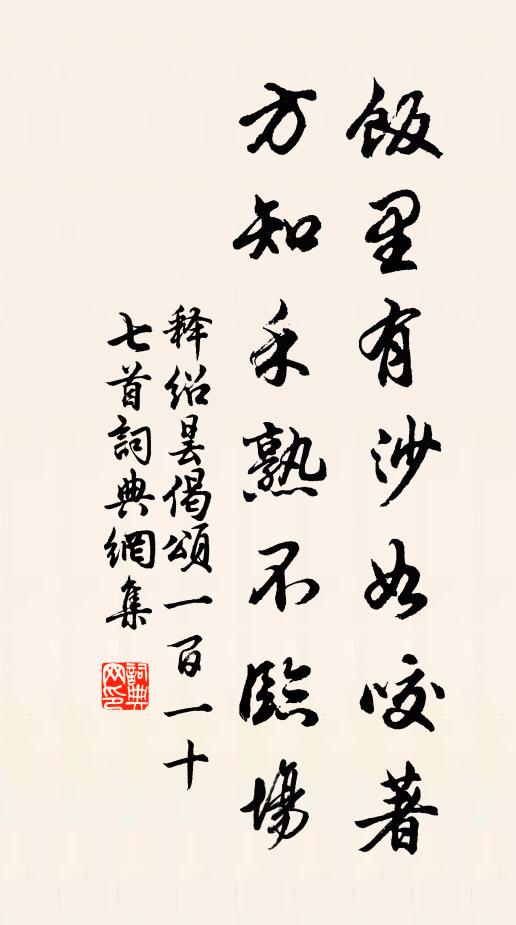 飯里有沙如咬著
方知禾熟不臨場
释紹昙偈頌一百一十
七首詞典網集
詞典网印